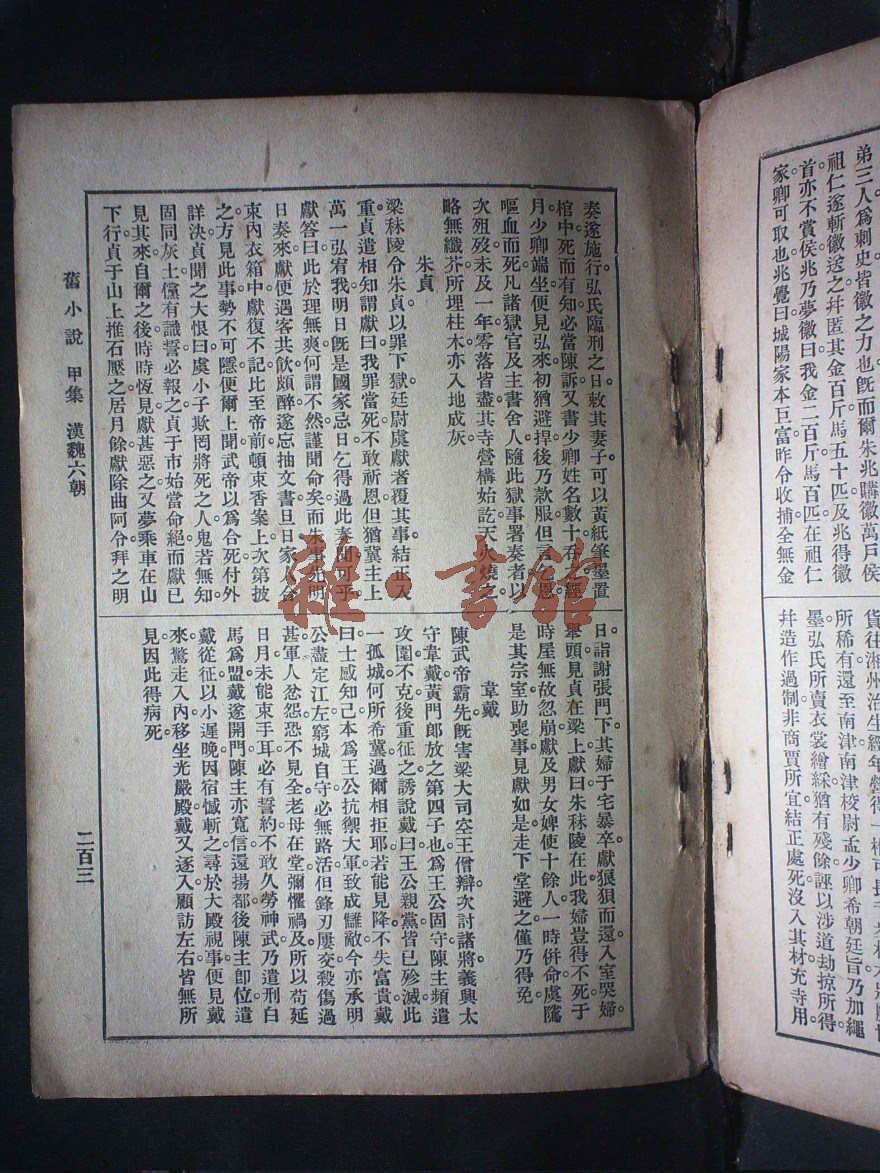 弟三人爲刺史皆徽之力也。旣而爾朱兆購徽萬戶侯
祖仁遂斬徽送之幷匿其金百斤馬五十匹及兆得徽
首亦不賞侯兆乃夢徽曰我金二百斤馬百匹在祖仁
家卿可取也兆覺曰城陽家本巨富昨令收捕全無金
貨往湘州治生經年營得一
所稀有還至南津南津校尉孟少卿希朝廷旨乃加繩
墨弘氏所賣衣裳繒綵猶有殘餘誣以涉道劫掠所得。
幷造作過制非商賈所宜結正處死沒入其材充寺用。
奏遂施行弘氏臨刑之日敕其妻子可以黃紙筆墨置
棺中死而有知必當陳訴又書少卿姓名數十吞之經
月少卿端坐便見弘來初猶避捍後乃款服但言乞恩
嘔血而死凡諸獄官及主書舍人隨此獄事署奏者以
次殂歿未及一年零落皆盡其寺營構始訖天火燒之
略無纖芥所埋柱木亦入地成灰
朱貞
梁秣陵令朱貞以罪下獄廷尉虞獻者覆其事結正入
重貞遣相知謂獻曰我罪當死不敢祈恩但猶冀主上
萬一弘宥我明日旣是國家忌日乞得過此奏聞可乎
獻答曰此於理無爽何謂不然謹聞命矣而朱事先明
日奏來獻便遇客共飲頗醉遂忘抽文書旦日家人合
束內衣箱中獻復不記比至帝前頓束香案上次第披
之方見此事勢不可隱便爾上聞武帝以爲合死付外
詳決貞聞之大恨曰虞小子欺罔將死之人鬼若無知
固同灰土儻有識誓必報之貞于市始當命絕而獻已
見其來自爾之後時時恆見獻甚惡之又夢乘車在山
下行貞于山上推石壓之居月餘獻除曲阿令拜之明
日詣謝張門下其婦于宅暴卒獻狼狽而還入室哭婦。
舉頭見貞在梁上獻曰朱秣陵在此我婦豈得不死于
時屋無故忽崩獻及男女婢使十餘人一時併命虞隲
是其宗室助喪事見獻如是走下堂避之僅乃得免
韋戴
陳武帝霸先旣害梁大司空王僧辯次討諸將義興太
守韋戴黃門郎放之第四子也爲王公固守陳主頻遣
攻圍不克後重征之誘說戴曰王公親黨皆已殄滅此
一孤城何所希冀過爾相拒耶若能見降不失富貴戴
曰士感知己本爲王公抗禦大軍致成讎敵今亦承明
公盡定江左窮城自守必無路活但鋒刃屢交殺傷過
甚軍人忿怨恐不見全老母在堂彌懼禍及所以苟延
日月未能束手耳必有誓約不敢久勞神武乃遣刑白
馬爲盟戴遂開門陳主亦寬信還揚都後陳主卽位遣
戴從征以小遲晚因宿憾斬之尋於大殿視事便見戴
來驚走入內移坐光嚴殿戴又逐入顧訪左右皆無所
見因此得病死
舊小說 甲集 漢魏六朝
二百三
雜·書館